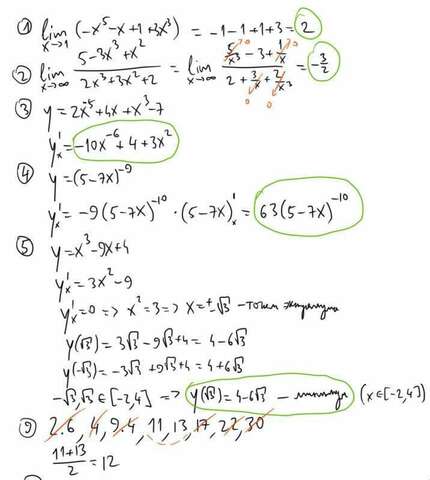 ① lim x→1 (-x⁵-x+1+3x³) = -1-1+1+3=2
② lim x→∞ (5-3x³+x²)/(2x³+3x²+2) = lim x→∞ (5/x³ -3+1/x)/(2+3/x+2/x³) = -3/2
0 0 0 0
③ y=2x⁻⁵+4x+x³-7
y'ₓ=-10x⁻⁶+4+3x²
④ y=(5-7x)⁻⁹
y'ₓ=-9(5-7x)⁻¹⁰·(5-7x)'ₓ=63(5-7x)⁻¹⁰
⑤ y=x³-9x+4
y'ₓ=3x²-9
y'ₓ=0 => x²=3 => x=±√3 - точки экстремума
y(√3)=3√3-9√3+4=4-6√3
y(-√3)=-3√3+9√3+4=4+6√3
-√3,√3∈[-2,4] => y(√3)=4-6√3 - минимум (x∈[-2,4])
⑨ 2.6, 4, 9.4, 11, 13, 17, 22, 30
(11+13)/2=12